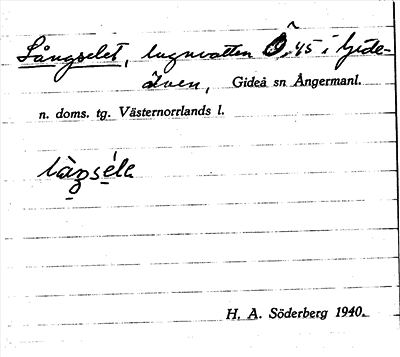 Långselet, lugnvatten Ö. 45 i Gide-
älven, Gideå sn Ångermanl.
n. doms. tg. Västernorrlands l.
làŋséle
H. A. Söderberg 1940.